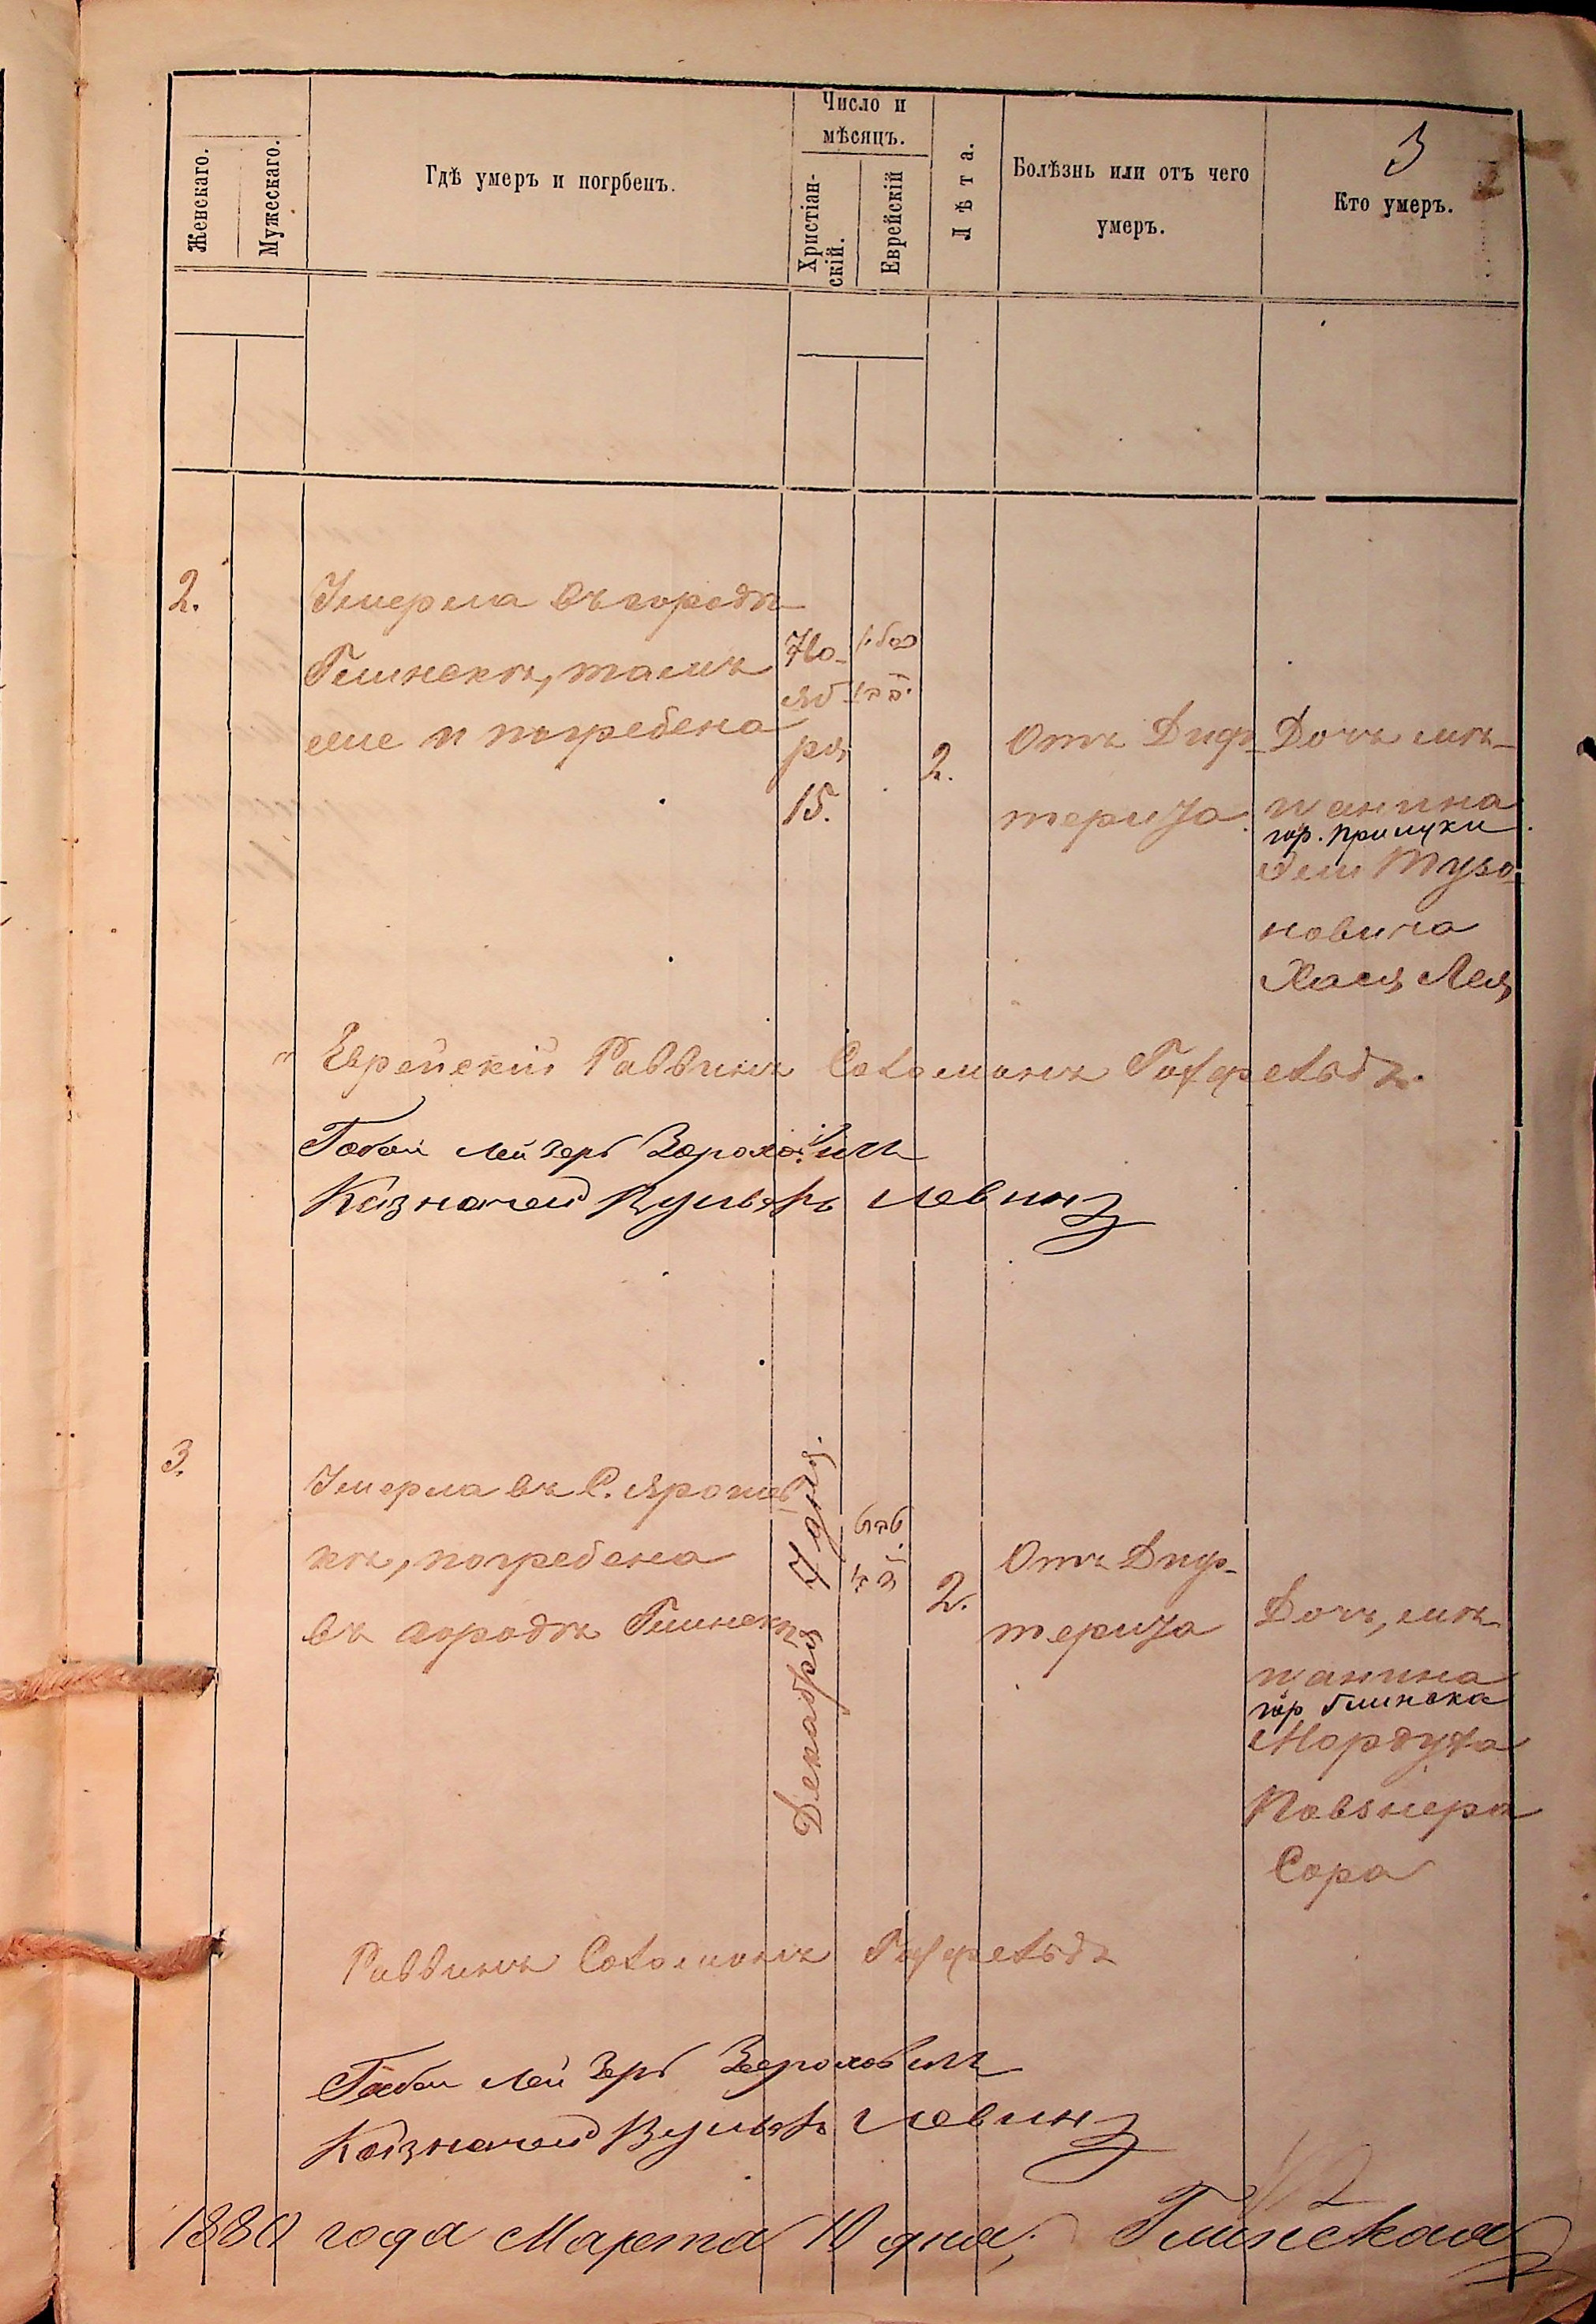 3
Женскаго.
Мужескаго.
Гдѣ умеръ и погрбенъ.
Число и
мѣсяцъ.
Христіан-
скій.
Еврейскій
Лѣта.
Болѣзнь или отъ чего
умеръ.
Кто умеръ.
2.
Умерла въ городѣ
Глинскѣ, тамъ
же и погребена
Но-
яб
ря
15.
2.
Отъ Диф-
терита
Дочь мѣ-
щанина
гор. Прилуки
новича
Хася Лея
Еврейскій Раввинъ Соломонъ
Габай Лейзеръ
Казначей Левинъ
3.
Умерла въ С. Ярошев
кѣ, погребена
въ городѣ Глинскѣ
Декабря 7 дня.
2.
Отъ Диф-
терита
Дочь, мѣ-
щанина
гор Глинска
Мордуха
Сора
Раввинъ Соломонъ
Габай Лейзеръ
Казначей Левинъ
1880 года Марта 10 дня, Глинская